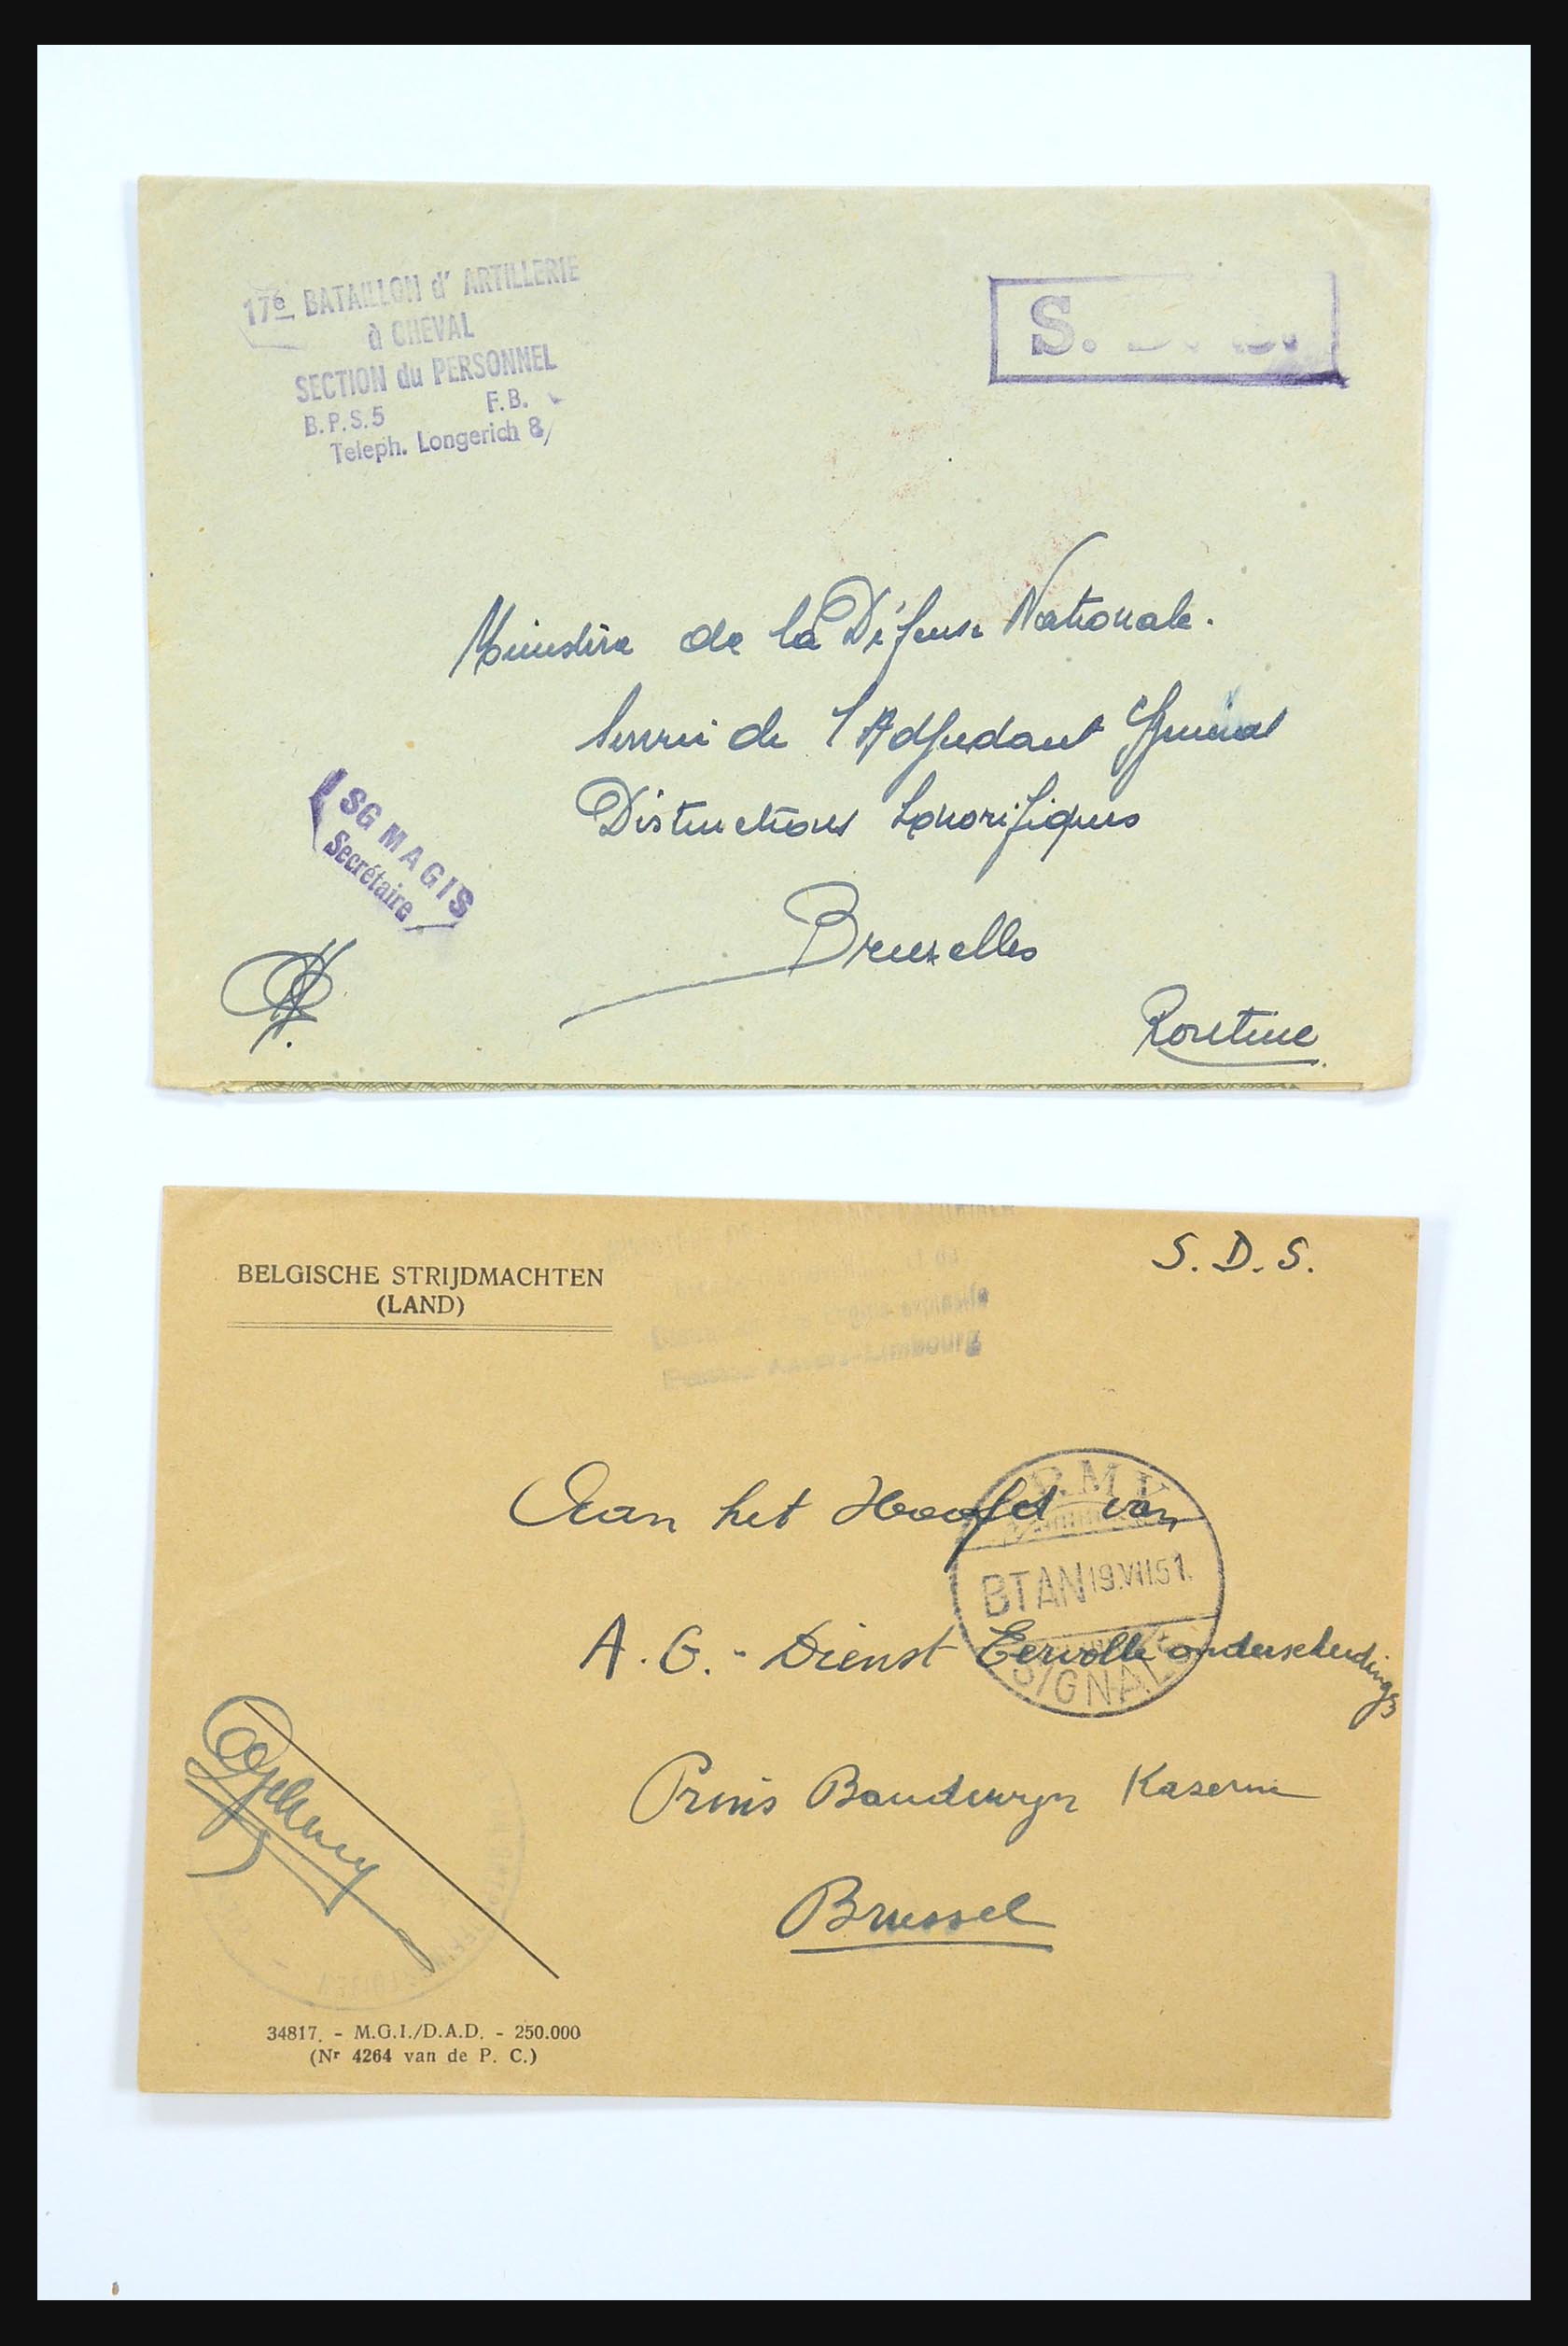 17e BATAILLON d' ARTILLERIE
à CHEVAL
SECTION du PERSONNEL
B.P.S.5 F.B.
Teleph. Longerich 8/
S. D. S.
Ministère de la Défense Nationale.
Service de l'Adjudant Général
Distinctions honorifiques
Bruxelles
Routine
1SG MAGIS
Secrétaire
BELGISCHE STRIJDMACHTEN
(LAND)
S. D. S.
Limbourg
Aan het Hoofd van
A. G. - Dienst Eervolle onderscheidings
Prins Boudewyn Kazerne
Brussel
ARMY
BTAN 19.VII.51.
SIGNALS
34817. - M.G.I./D.A.D. - 250.000
(Nr 4264 van de P. C.)